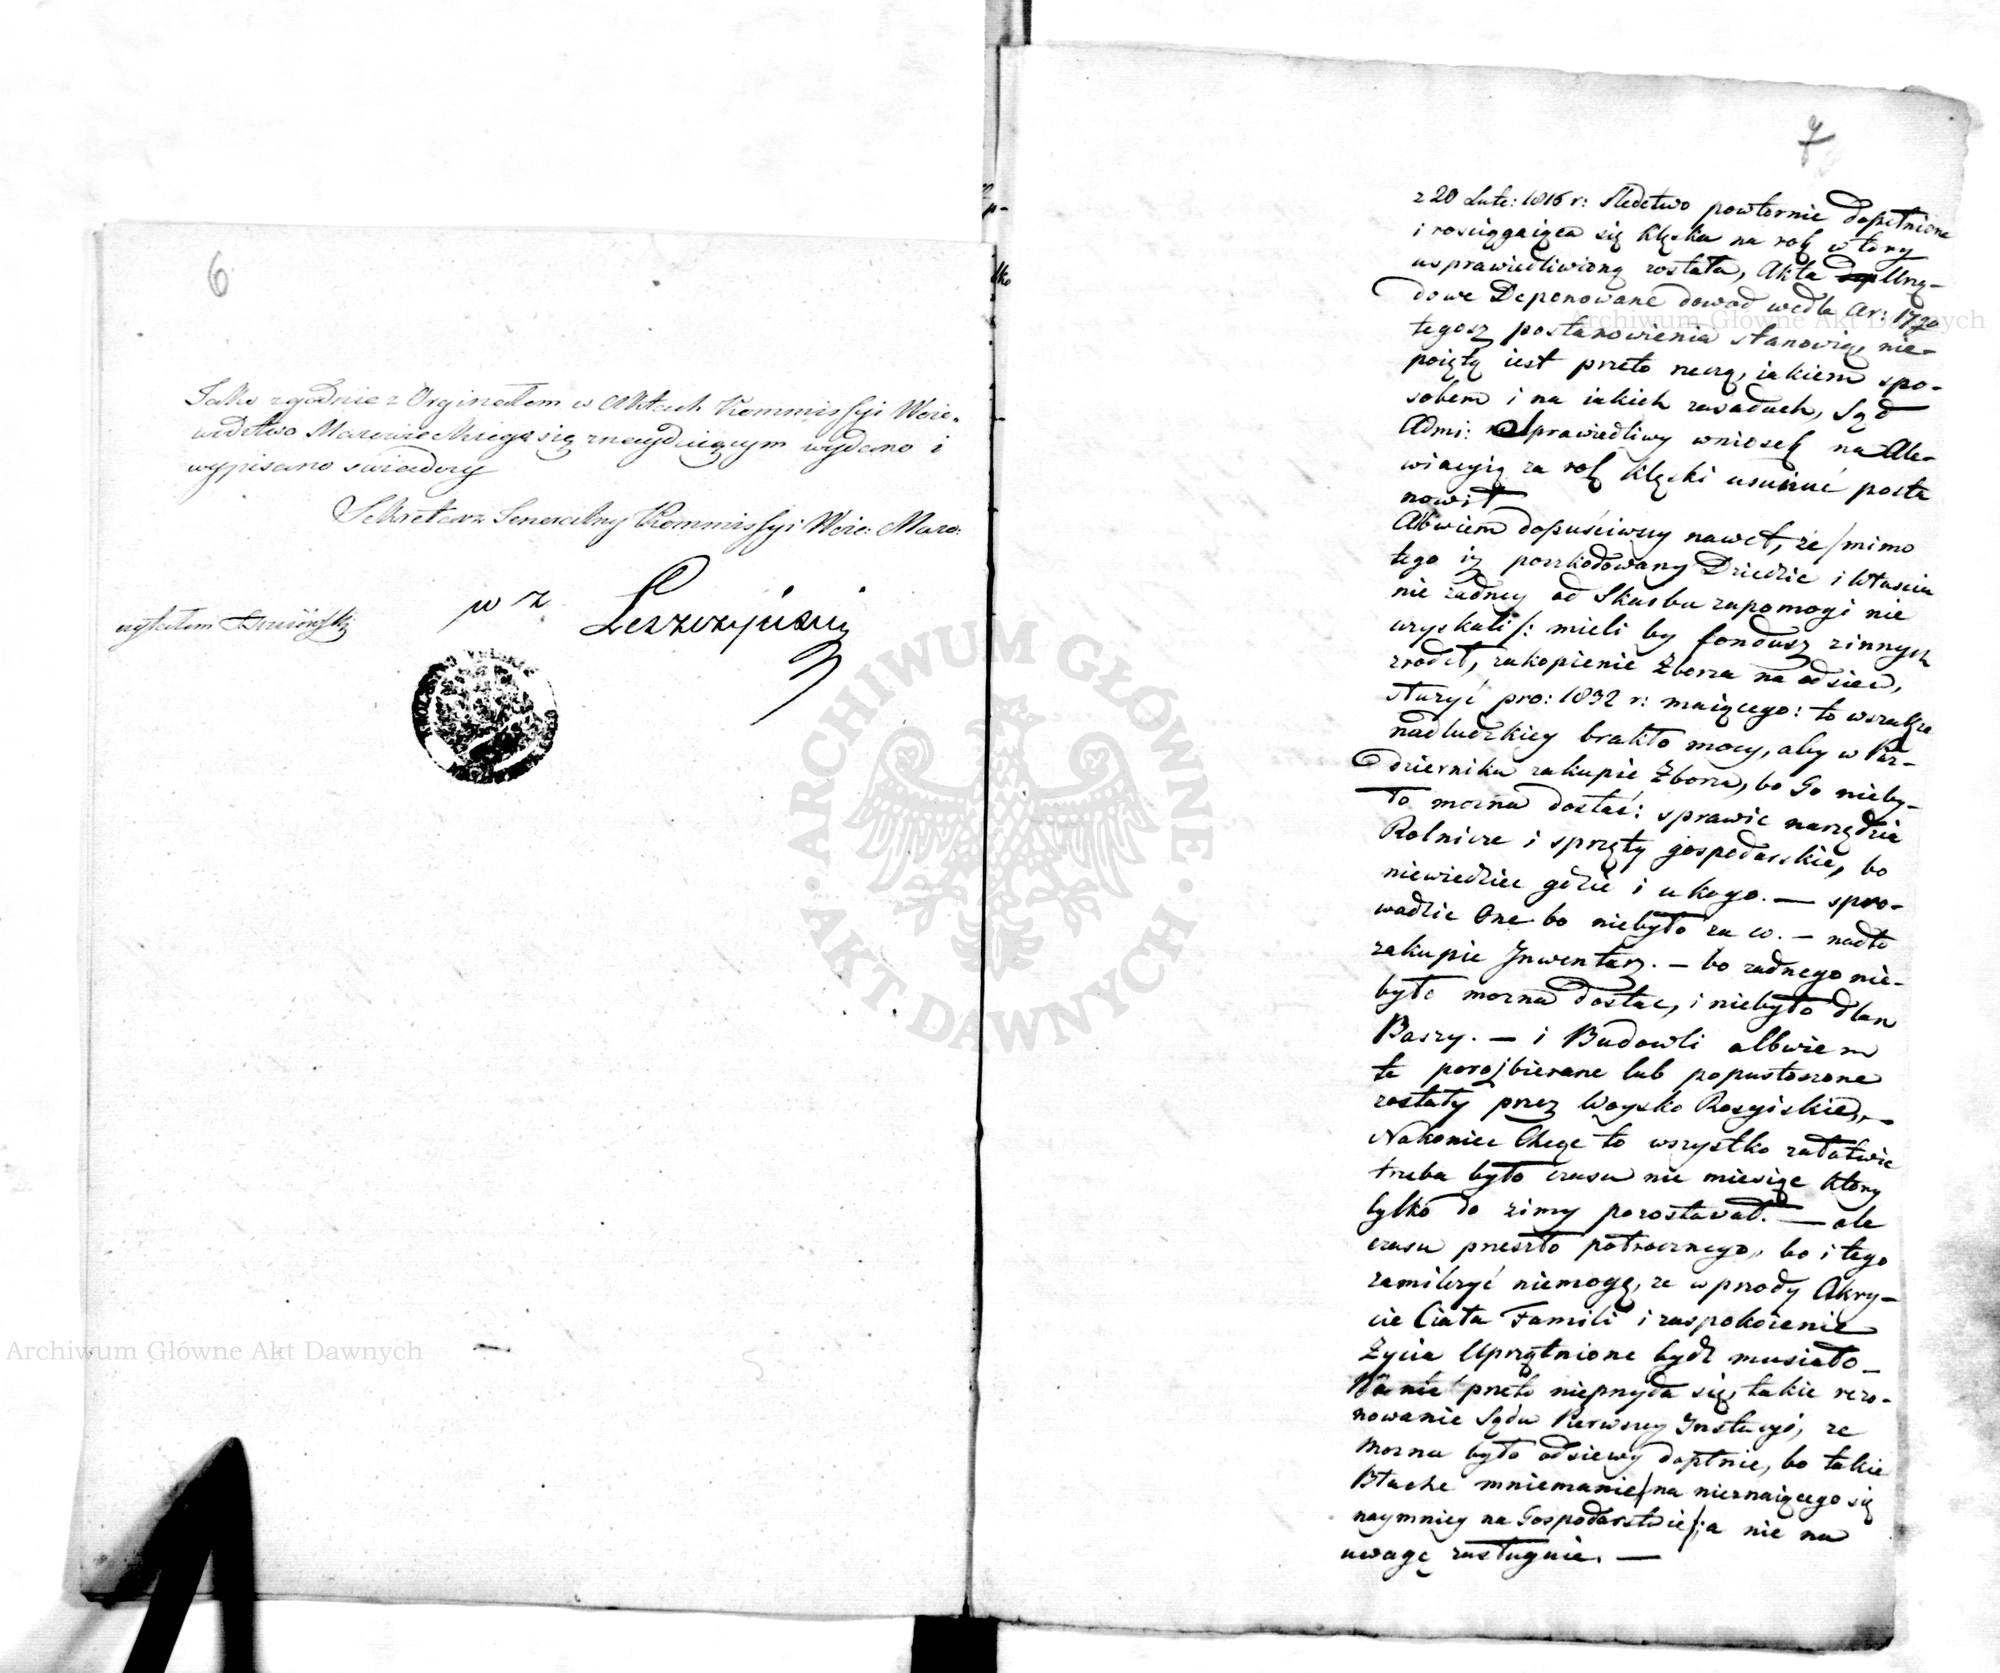 6
Jako zgodnie z Orginałem w Aktach Kommissyi Woie-
wództwa Mazowieckiego się znayduiącym wydano i
wypisano swiadczy
Sekretarz Generalny Kommissyi Woie: Mazo:
czytałem
w z Leszczyński
7
z 20 Lute: 1816 r: Sledctwo powtornie dopełnione
i rosciągaiąca się klęska na rok wtory
usprawiedliwioną została, Akta Urzę-
dowe Deponowane dowod wedle Ar: 17go
tegosz postanowienia stanowią, nie-
poiętą iest przeto rzeczą, iakiem spo-
sobem i na iakich zasadach, Sąd
Admi: Sprawiedliwy wniosek na Ale-
wiacyią za rok klęski usunuć posta
nowił
Albwiem dopuściwszy nawet, że /mimo
tego iż poszkodowany Dziedzic i Włascia
nie żadney od Skarbu zapomogi nie
uzyskali/: mieli by fondusz z innych
zrodeł, zakopienie Zboża na odsiew,
służyć pro: 1832 r: maiącego: to wszakże
nadludzkiey brakło mocy, aby w Paz-
dzierniku zakupić Zboża, bo Go nieby-
ło można dostać: sprawić narzędzia
Rolnicze i sprzęty gospodarskie, bo
niewiedziec gdzie i u kogo. — spro-
wadzic One bo niebyło za co. — nadto
zakupic Jnwentarz. — bo żadnego nie-
było można dostac, i niebyło dlań
Paszy. — i Budowli albwiem
te porozbierane lub popustoszone
zostały przez Woysko Rosyiskie, —
Nakoniec Chcąc to wszystko załatwic
trzeba było czasu nie miesiąc który
tylko do zimy pozostawał. — ale
czasu przeszło połrocznego, bo i tego
zamilczyć niemogę, że w przody Okry-
cie Ciała Familii i zaspokoienie
Życia Uprzątnione bydz musiało —
Na nic przeto nieprzyda się, takie rezo-
nowanie Sądu Pierwszey Jnstacyi, ze
można było odsiewy dopłnic, bo takie
Błache mniemanie /na nieznaiącego się
naymniey na Gospodarstwie/: a nie na
uwagę zasługuie. —
Archiwum Główne Akt Dawnych
Archiwum Główne Akt Dawnych
ARCHIWUM GŁÓWNE AKT DAWNYCH